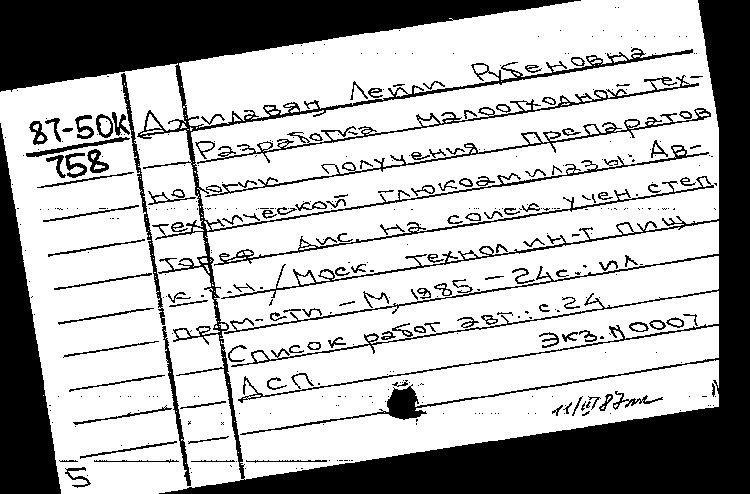 87-50К
758
Джилавян Лейли Рубеновна
Разработка малоотходной тех-
нологии получения препаратов
технической глюкоамилазы: Ав-
тореф. дис. на соиск. учен. степ.
к.т.н. / Моск. технол. ин-т пищ.
пром-сти. – М., 1985. – 24с.: ил.
Список работ авт.: с.24
ДСП. Экз. N0007
11/III 87
5